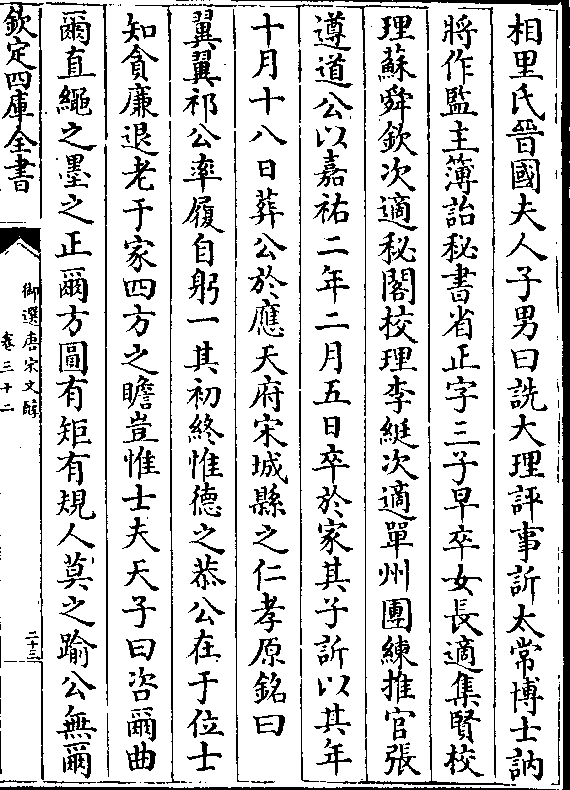 相里氏晉國夫人子男曰詵大理評事訢太常博士訥
將作監主簿詒秘書省正字三子早卒女長適集賢校
理蘇舜欽次適秘閣校理李綎次適單州團練推官張
遵道公以嘉祐二年二月五日卒於家其子訢以其年
十月十八日葬公於應天府宋城縣之仁孝原銘曰
翼翼祁公率履自躬一其初終惟德之恭公在于位士
知貪廉退老于家四方之瞻豈惟士夫天子曰咨爾曲
爾直繩之墨之正爾方圓有矩有規人莫之踰公無爾
欽定四庫全書
御選唐宋文醇
卷三十二
二十三